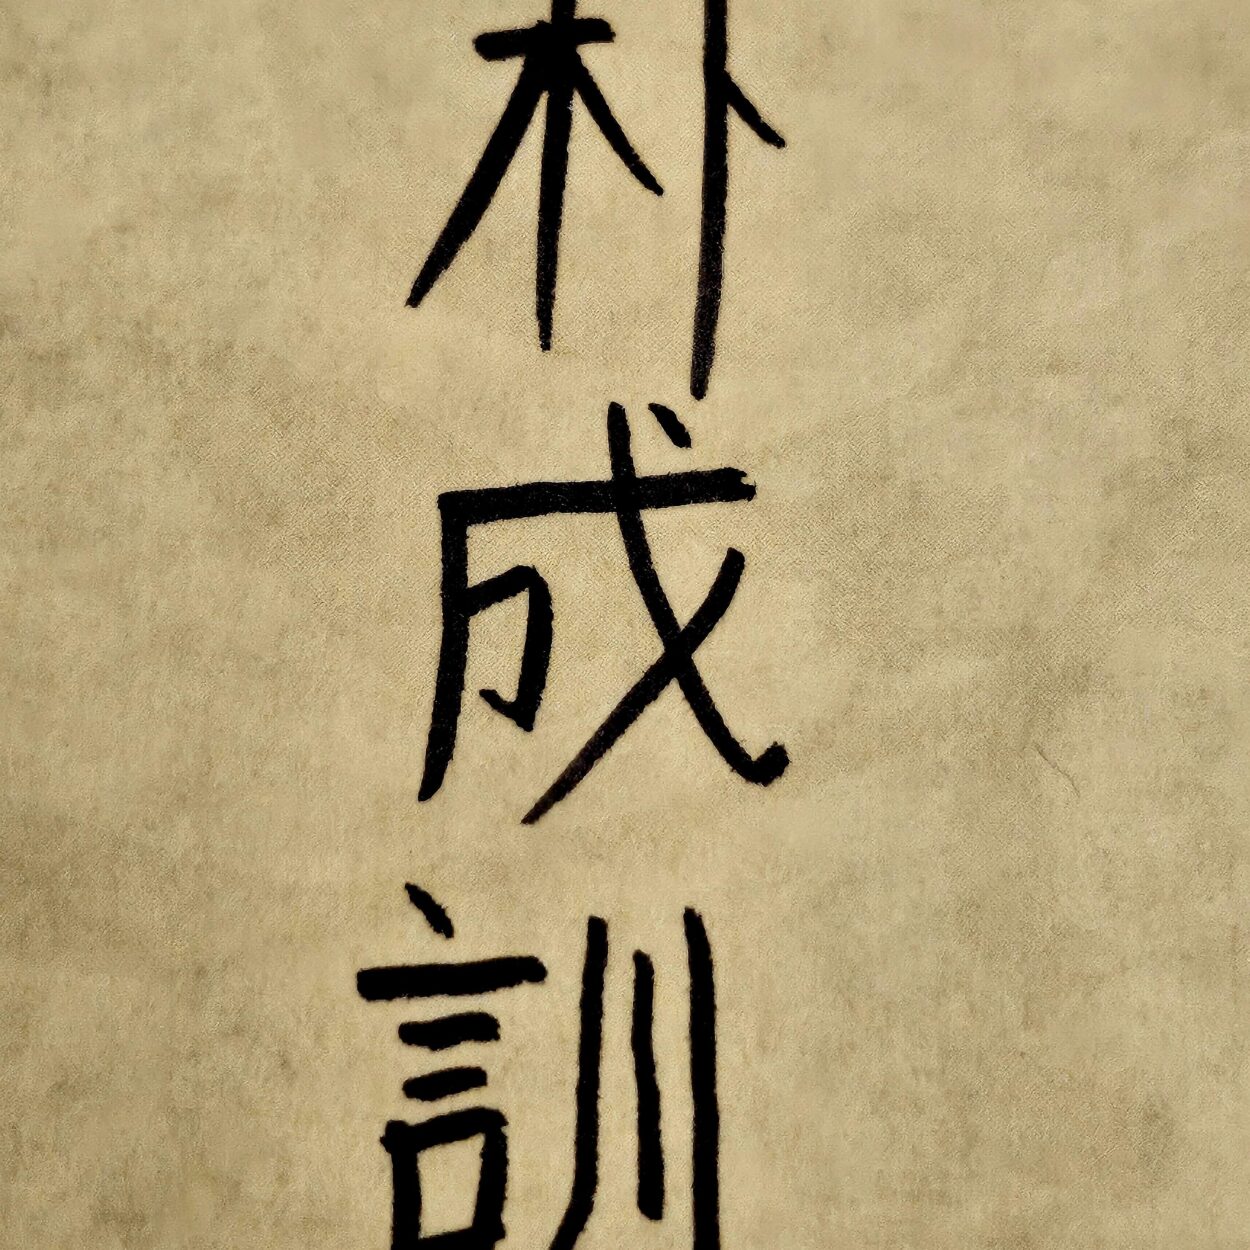 朴成訓